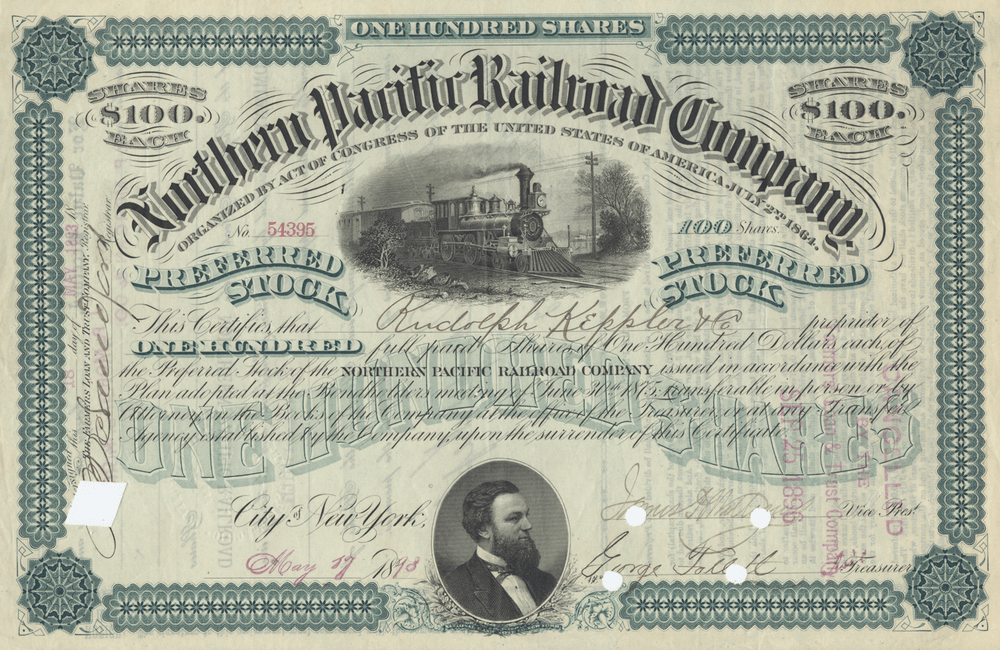 ONE HUNDRED SHARES
SHARES $100. EACH
SHARES $100. EACH
Northern Pacific Railroad Company.
ORGANIZED BY ACT OF CONGRESS OF THE UNITED STATES OF AMERICA, JULY 2ND 1864.
No. 54395
100 Shares.
PREFERRED STOCK
PREFERRED STOCK
This Certifies, that Rudolph Keppler & Co proprietor of
ONE HUNDRED full paid Shares of One Hundred Dollars each, of
the Preferred Stock of the NORTHERN PACIFIC RAILROAD COMPANY issued in accordance with the
Plan adopted at the Bondholders meeting of June 30th 1875, transferable in person or by
Attorney, in the Books of the Company at the office of the Treasurer, or at any Transfer
Agency established by the Company, upon the surrender of this Certificate.
ONE HUNDRED SHARES
City of New York,
Vice Prest.
May 1893
George Treasurer
CANCELLED
SEP 25 1896
Countersigned this 18 day of MAY 1893
THE FARMERS LOAN AND TRUST COMPANY,